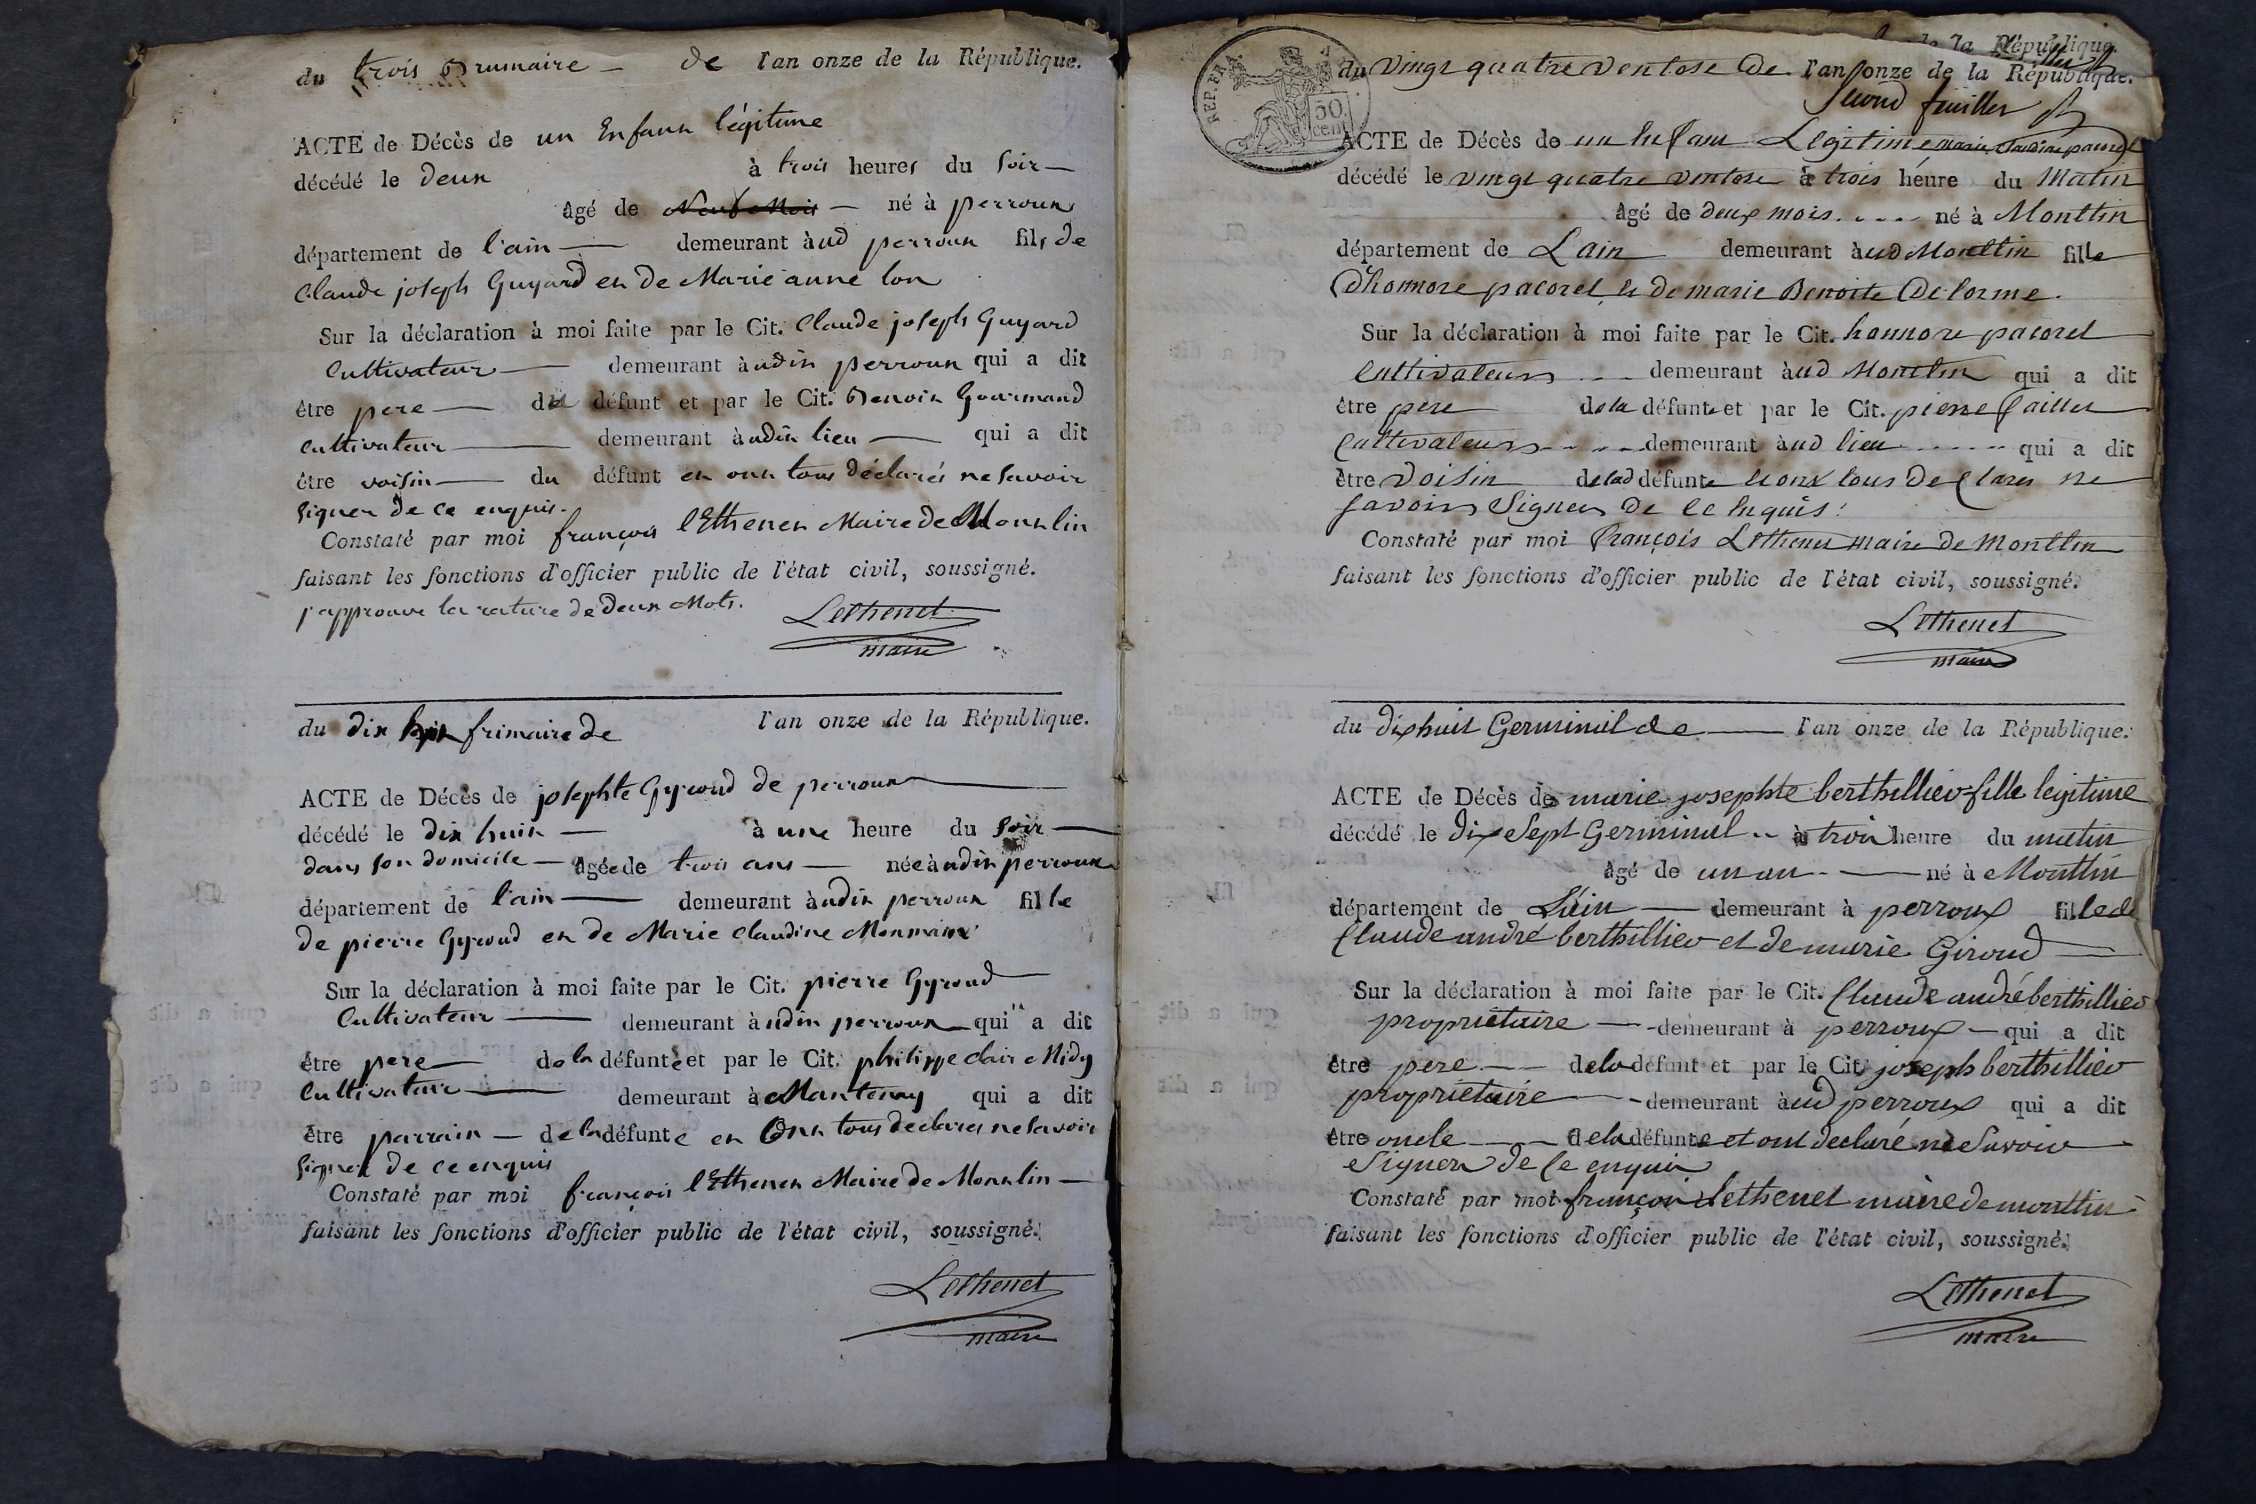 du trois Brumaire — de l'an onze de la République.
ACTE de Décès de un Enfant légitime
décédé le deux à trois heures du soir —
âgé de Neuf Mois — né à perroux
département de l'ain — demeurant àud perroux fils de
Claude joseph Guyard et de Marie anne lon
Sur la déclaration à moi faite par le Cit. Claude joseph Guyard
Cultivateur — demeurant àudit perroux qui a dit
être pere — du défunt et par le Cit. Benoit Gourmand
cultivateur — demeurant àudit lieu — qui a dit
être voisin — du défunt et ont tous déclarés ne savoir
signer de ce enquis.
Constaté par moi françois l'Ethenet Maire de Montlin
faisant les fonctions d'officier public de l'état civil, soussigné.
j'approuve la rature de deux Mots.
Lethenet
maire
du dix huit frimaire de l'an onze de la République.
ACTE de Décès de josephte Gyroud de perroux —
décédé le dix huit — à une heure du soir —
dans son domicile — âgée de trois ans — née àudit perroux
département de l'ain — demeurant àudit perroux fille
de pierre Gyroud et de Marie Claudine
Sur la déclaration à moi faite par le Cit. pierre Gyroud —
Cultivateur — demeurant àudit perroux — qui a dit
être pere — de la défunte et par le Cit. philippe clair Midy
Cultivateur — demeurant à Mantenay qui a dit
être parrain — de la défunte et ont tous declares ne savoir
signer de ce enquis
Constaté par moi françois l'Ethenet Maire de Montlin —
faisant les fonctions d'officier public de l'état civil, soussigné.
Lethenet
maire
de la République.
REP. FRA.
50 cent
du vingt quatre ventose de l'an onze de la République.
second feuillet
ACTE de Décès de un Enfant Legitime marie Claudine pacoret
décédé le vingt quatre ventose à trois heure du Matin
âgé de deux mois.... né à Montlin
département de Lain demeurant àud Montlin fille
d'honnore pacoret et de marie Benoite Delorme.
Sur la déclaration à moi faite par le Cit. honnore pacoret
Cultivateur ... demeurant àud Montlin qui a dit
être pere de la défunte et par le Cit. pierre
Cultivateur .... demeurant àud lieu ..... qui a dit
être voisin de lad défunte et ont tous declares ne
savoir signer de ce enquis.
Constaté par moi françois Lethenet maire de Montlin
faisant les fonctions d'officier public de l'état civil, soussigné.
Lethenet
maire
du dixhuit Germinal de — l'an onze de la République.
ACTE de Décès de marie josephte berthillier fille legitime
décédé le dixsept Germinal .. à trois heure du matin
âgé de un an — né à Montlin
département de L'ain — demeurant à perroux fille de
Claude andré berthillier et de marie Giroud —
Sur la déclaration à moi faite par le Cit. Claude andré berthillier
propriétaire — demeurant à perroux — qui a dit
être pere — de la défunt et par le Cit. joseph berthillier
propriétaire — demeurant àud perroux qui a dit
être oncle — de la défunte et ont declaré ne savoir
signer de ce enquis
Constaté par moi françois lethenet maire de montlin
faisant les fonctions d'officier public de l'état civil, soussigné.
Lethenet
maire